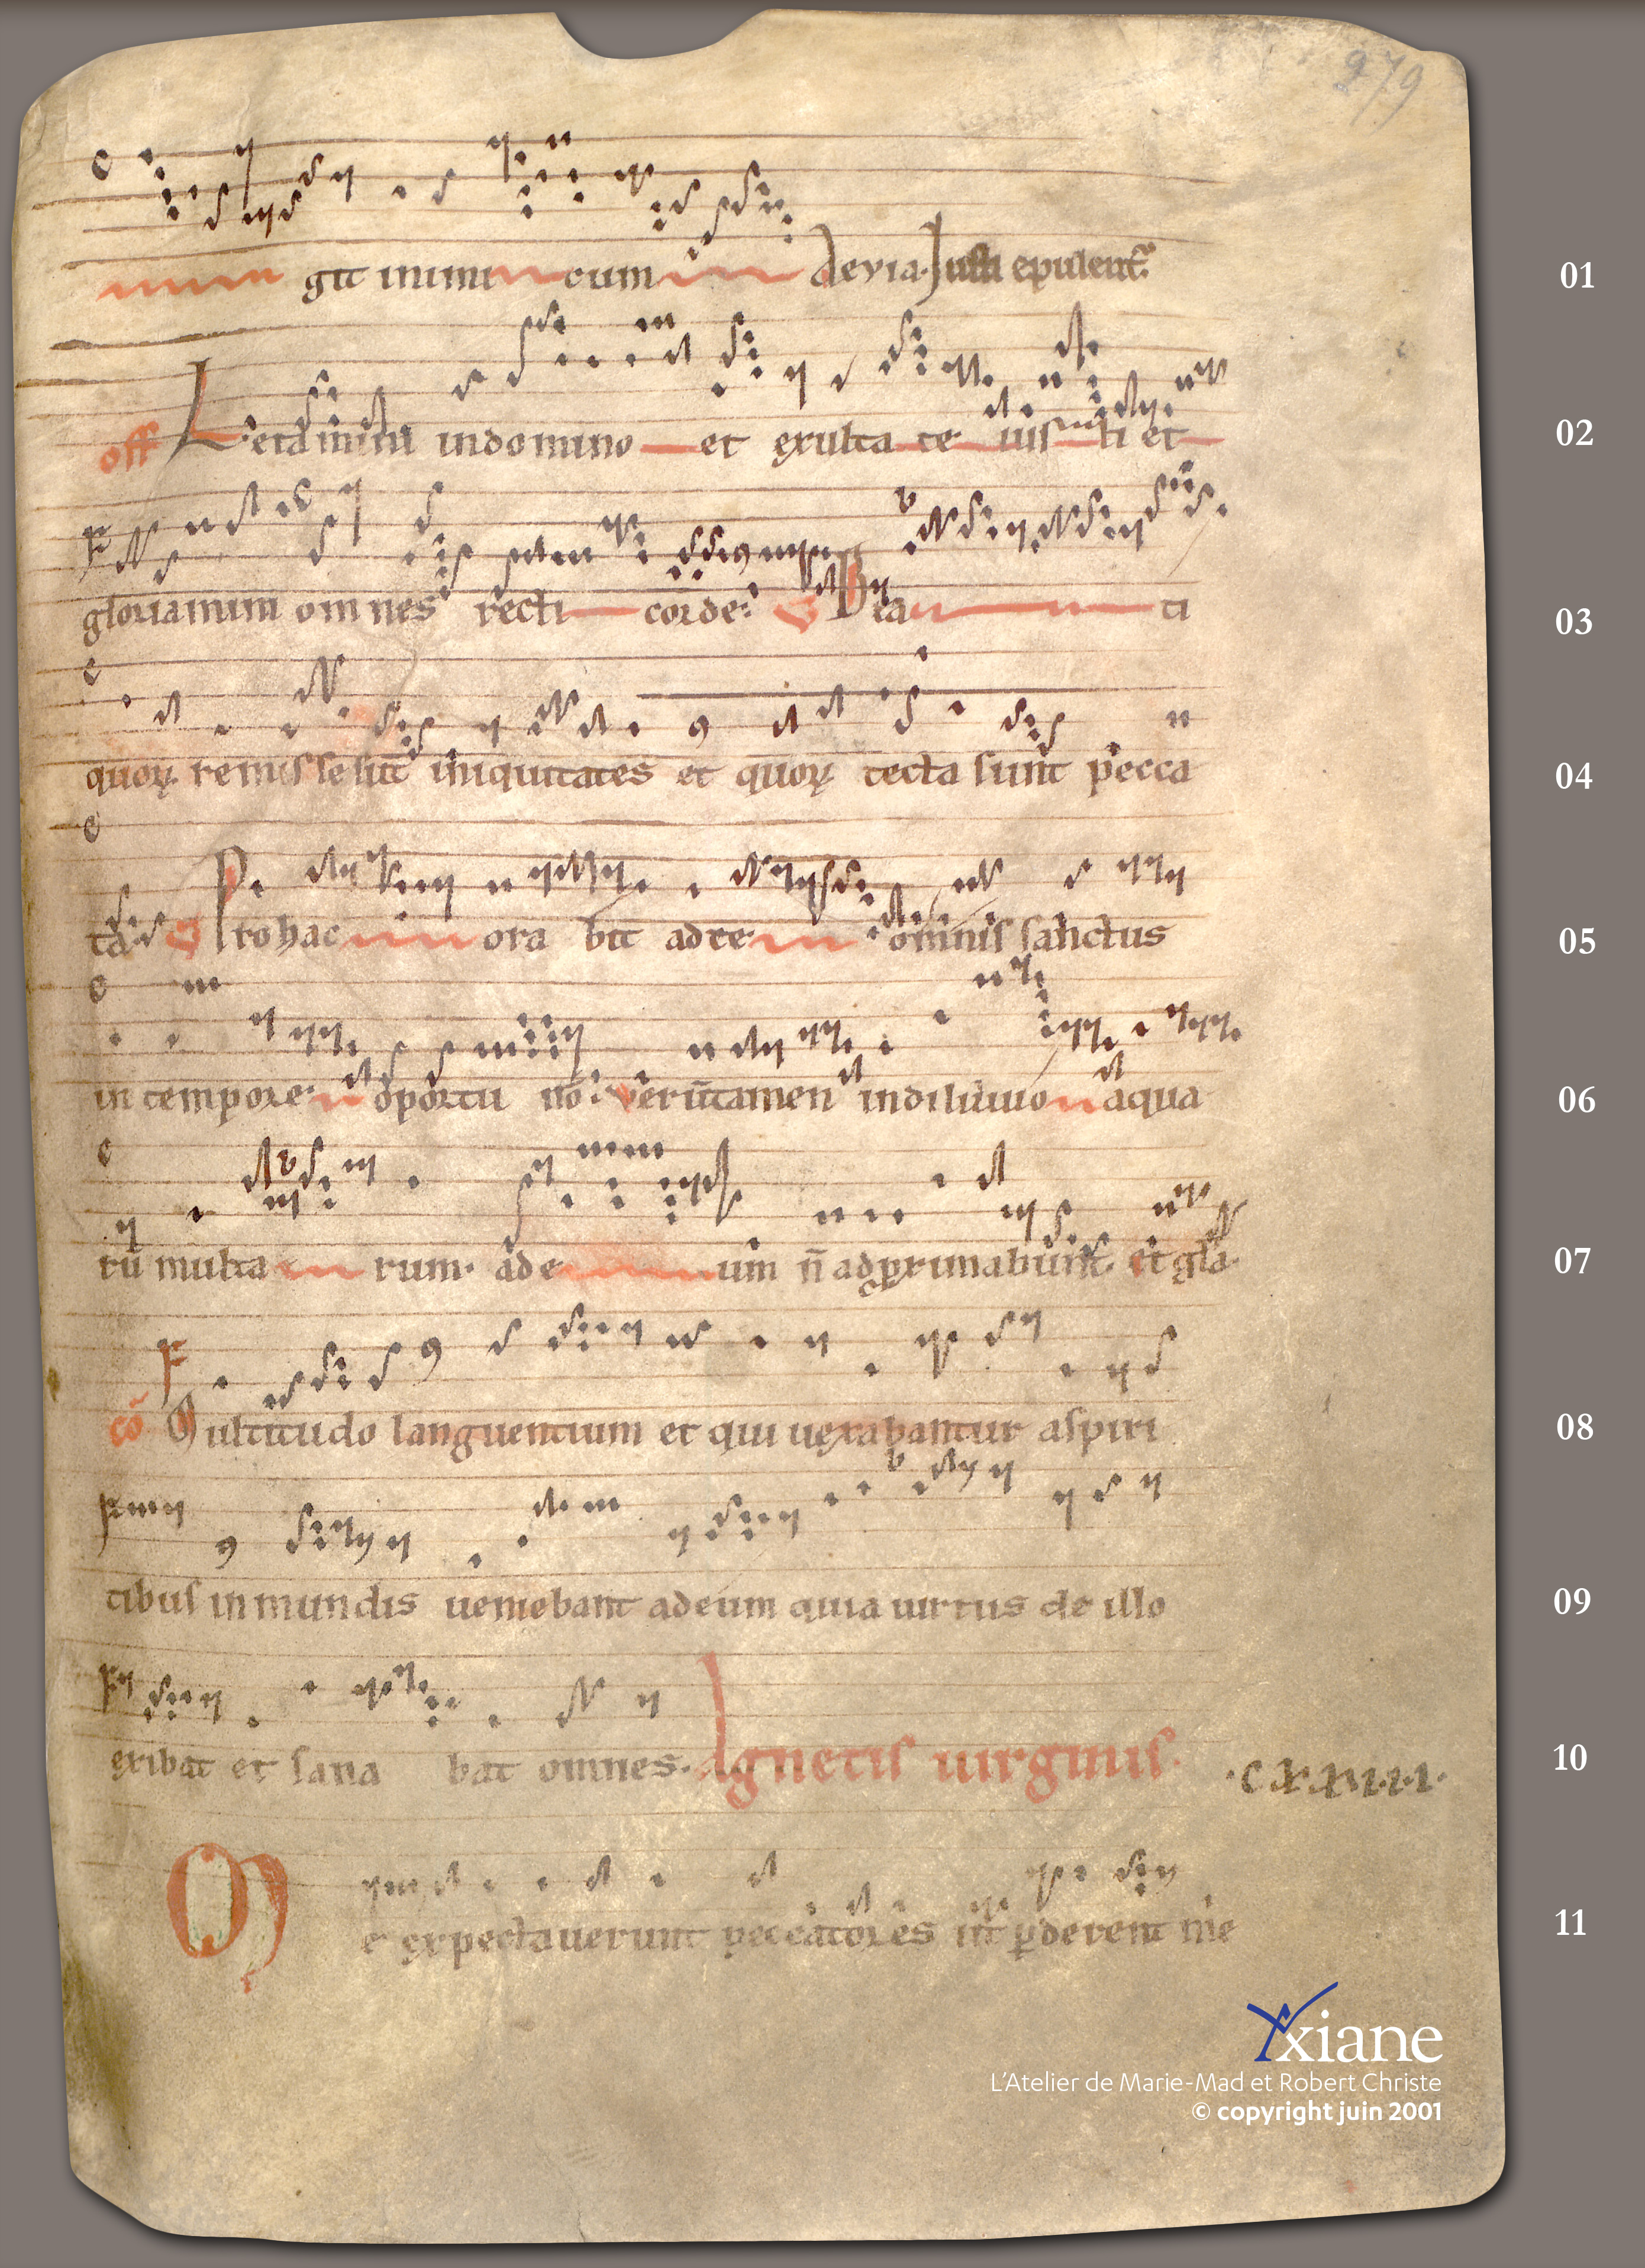 279
git inimi cum devia. Justi epulent᷑.
01
off Letamini in domino et exulta te ius ti et
02
gloriamini omnes recti corde. Bea ti
03
quoꝝ remisse sūt iniquitates et quoꝝ tecta sunt pecca
04
ta Pro hac ora bit ad te omnis sanctus
05
in tempore oportu no. verūtamen in diluuio aqua
06
rū multa rum. ad e um n̄ adꝓximabunt. et gła.
07
cō Multitudo languentium et qui uexabantur a spiri
08
tibus inmundis ueniebant ad eum quia uirtus de illo
09
exibat et sana bat omnes. Agnetis uirginis. .CXXVI.I.I.
10
Me expectauerunt peccatores ut ꝑderent me
11
Yxiane
L'Atelier de Marie-Mad et Robert Christe
© copyright juin 2001